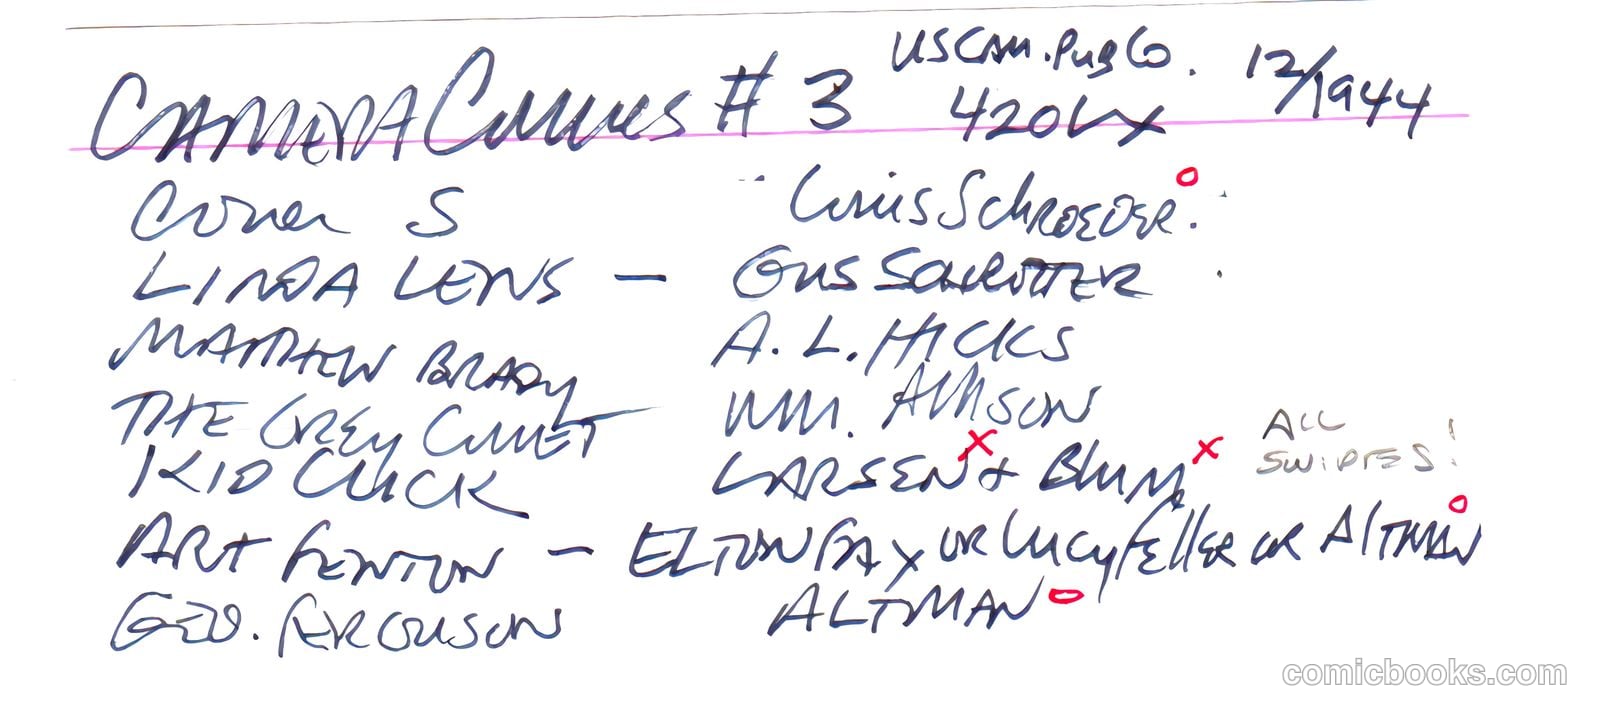 CAMERA COMICS # 3 US CAM. PUB CO. 12/1944
420 LEX
Cover S Louis SCHROEDER.
LINDA LENS — GUS SCHROTTER
MATTHEW BRADY A. L. HICKS
THE GREY COMET WM. ALLISON
KID CLICK LARSEN + BLUM
ALL
SWIPES!
ART FENTON — ELTON FAX OR LUCY FELLER OR ALTMAN
GEO. FERGUSON ALTMAN
comicbooks.com